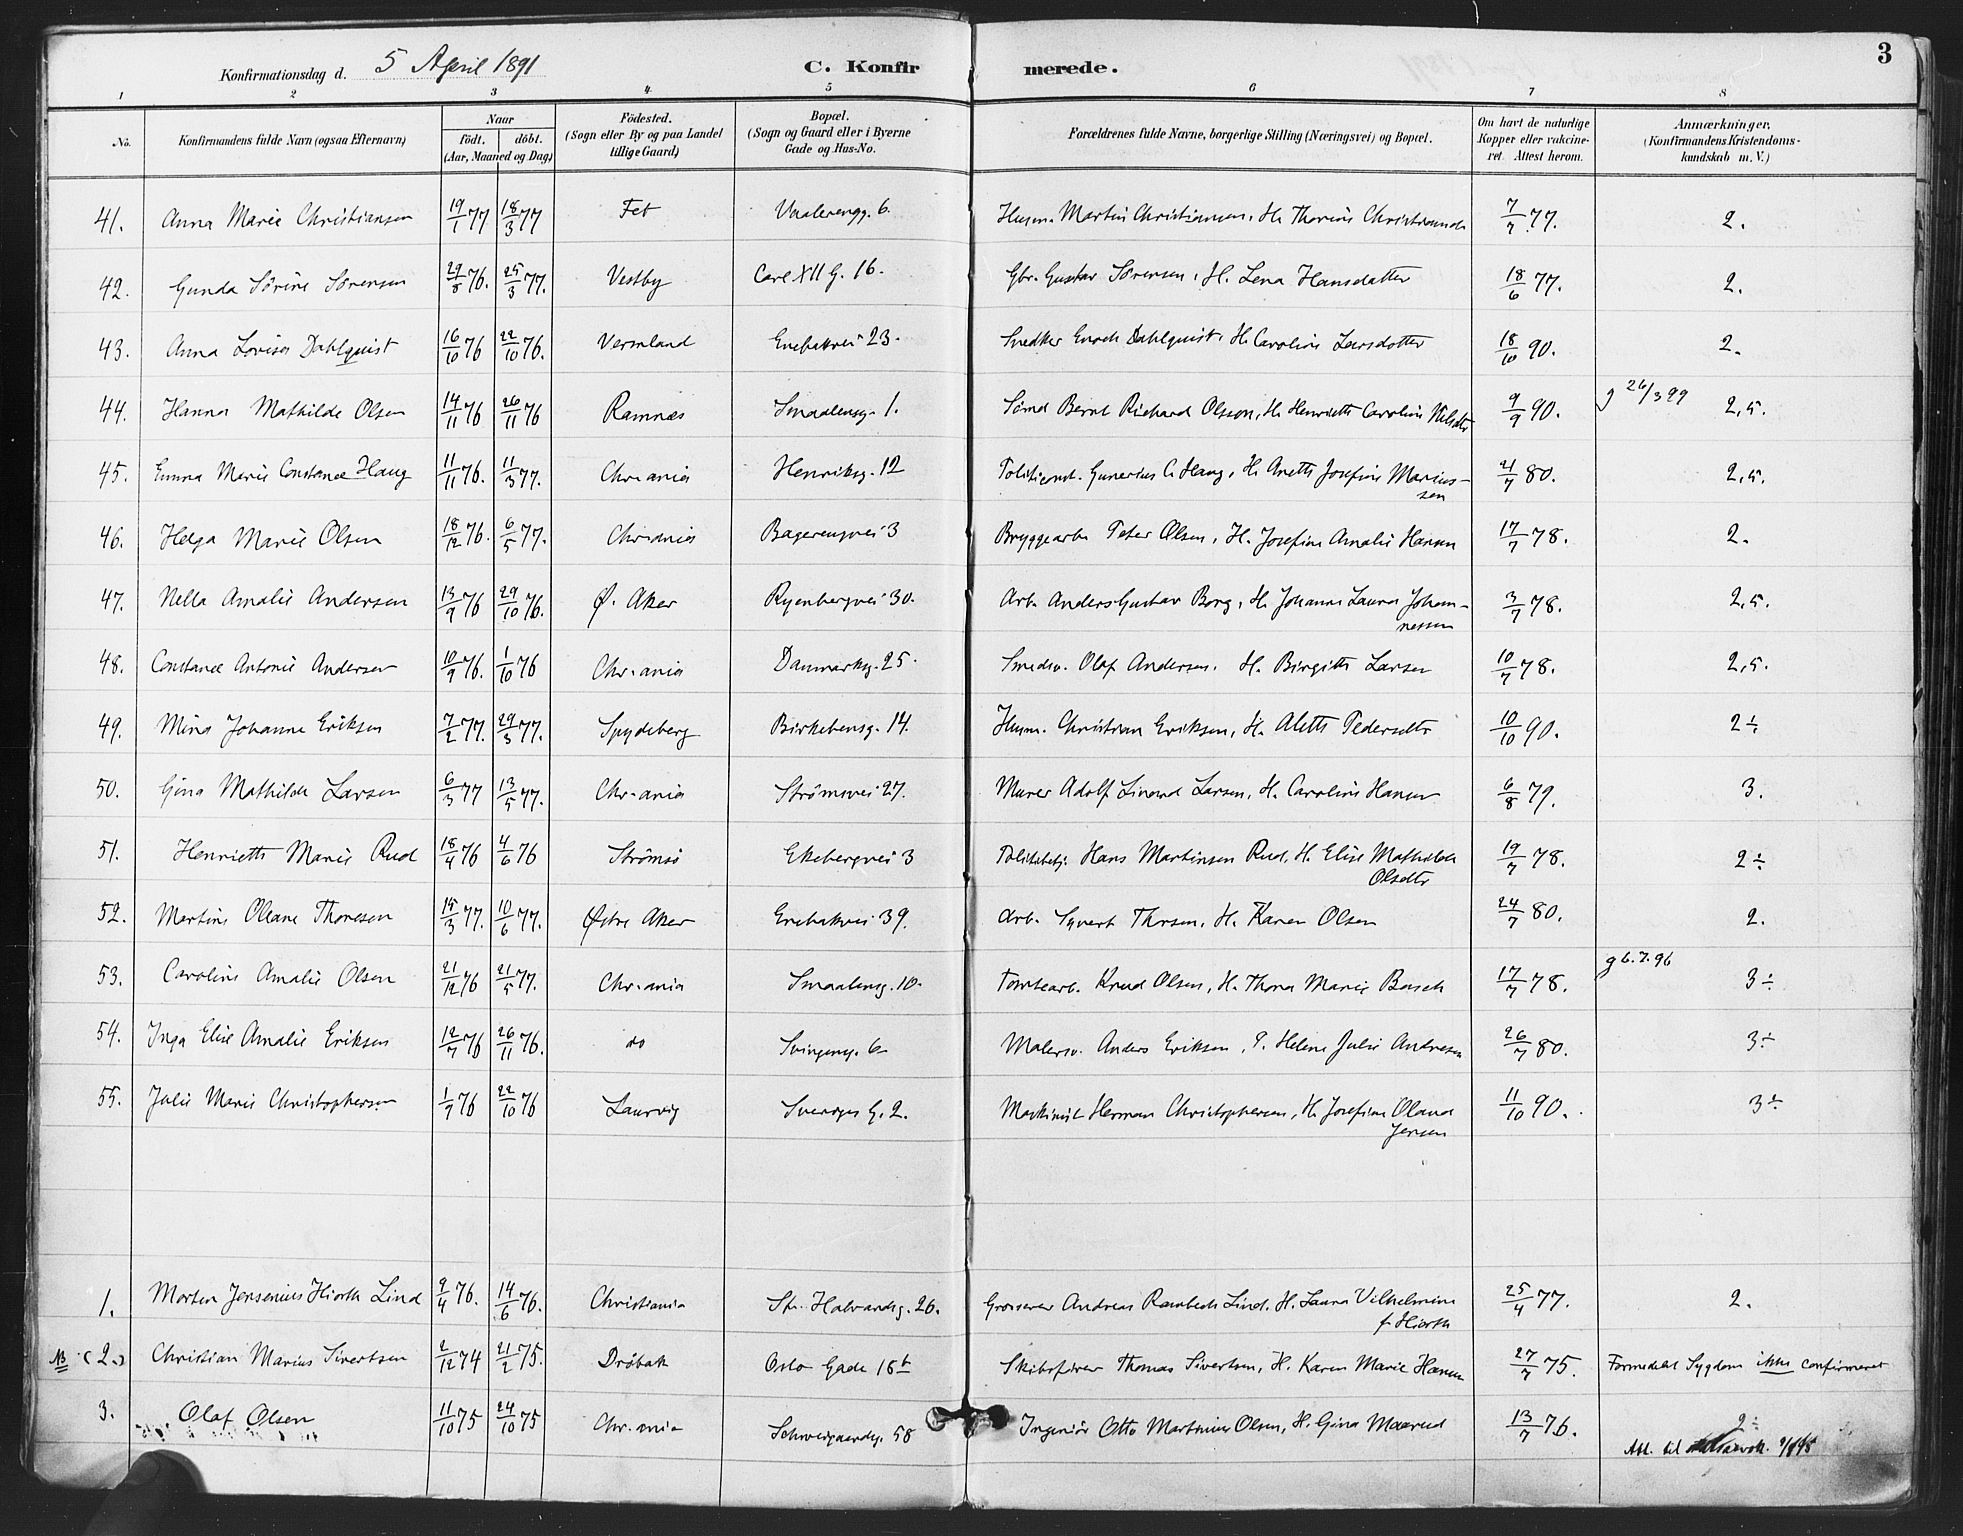 Konfirmationsdag d. 5 April 1891 C. Konfirmerede. 3
1 2 3 4. 5 6 7 8
No. Konfirmandens fulde Navn (ogsaa Efternavn) Naar födt. döbt. (Aar, Maaned og Dag) Födested. (Sogn eller By og paa Landet tillige Gaard) Bopæl. (Sogn og Gaard eller i Byerne Gade og Hus-No. Forældrenes fulde Navne, borgerlige Stilling (Næringsvei) og Bopæl. Om havt de naturlige Kopper eller vakcineret. Attest herom. Anmærkninger. (Konfirmandens Kristendomskundskab m. V.)
41. Anna Marie Christiansen 19/1 77 18/3 77 Fet Vaalerengg. 6. Husm. Martin Christiansen, H. Thorine Christiansdr 7/7 77. 2.
42. Gunda Sörine Sörensen 29/8 76. 25/3 77. Vestby Carl XII G. 16. Gbr. Gustav Sörensen, H. Lena Hansdatter 18/6 77. 2.
43. Anna Lovisa Dahlquist 16/10 76 22/10 76. Vermland Enebakvei 23. Snedker Enoch Dahlquist, H. Caroline Larsdotter 18/10 90. 2.
44. Hanna Mathilde Olsen 14/11 76 26/11 76 Ramnæs Smaalensg. 1. Sömd Bernt Richard Olsson, H. Henriette Caroline Nilsdtr 9/9 90. g 26/3 99 2,5.
45. Emma Marie Constance Haug 11/11 76. 11/3 77. Chr.ania Henriksg. 12 Politiconst. Gunerius C. Haug, H. Anette Josefine Mariussen 21/7 80. 2,5.
46. Helga Marie Olsen 18/12 76. 6/5 77. Chr.ania Bagerengvei 3 Bryggearb. Peter Olsen, H. Josefine Amalie Hansen 17/7 78. 2.
47. Nella Amalie Andersen 13/9 76 29/10 76. Ø. Aker Ryenbergvei 30. Arb. Anders Gustav Borg, H. Johanne Laura Johannessen 3/7 78. 2,5.
48. Constance Antonie Andersen 10/9 76. 1/10 76 Chr.ania Danmarksg. 25. Smedsv. Olaf Andersen. H. Birgitte Larsen 10/7 78. 2,5.
49. Mina Johanne Eriksen 7/2 77. 29/3 77. Spydeberg Birkebensg. 14. Husm. Christian Eriksen, H. Alette Pedersdtr 10/10 90. 2÷
50. Gina Mathilde Larsen 6/3 77 13/5 77. Chr.ania Strömsvei 27. Murer Adolf Larsen, H. Caroline Hansen 6/8 79. 3.
51. Henriette Marie Rud 18/4 76 4/6 76 Strömsö Ekebergvei 3 Politibetj. Hans Martinsen Rud, H. Elise Mathilde Olsdtr 19/7 78. 2÷
52. Martine Oleane Thoresen 77. 10/6 77. Østre Aker Enebakvei 39. Arb. Syvert Thorsen, H. Karen Olsen 24/7 80. 2.
53. Caroline Amalie Olsen 21/12 76 21/5 77. Chr.ania Smaalensg. 10. Tomtearb. Knud Olsen, H. Thora Marie Basch 17/7 78. g 6.7.96 3÷
54. Inga Elise Amalie Eriksen 12/7 76 26/11 76. do Svingeng. 6 Malersv. Anders Eriksen, P. Helene Julie Andresen 26/7 80. 3÷
55. Julie Marie Christophersen 1/7 76 22/10 76 Laurvig Sverges G. 2. Maskinist Herman Christophersen, H. Josefine Olava Jensen 11/10 90. 3÷
1. Morten Jensenius Hiorth Lind 9/4 76. 14/6 76. Christiania St. Halvardsg. 26. Grosserer Andreas Rambech Lind, H. Laura Vilhelmine f. Hiorth 25/4 77. 2.
NB (2.) Christian Marius Sivertsen 2/12 74 21/2 75. Dröbak Oslo Gade 16b Skibsförer Thomas Sivertsen, H. Karen Marie Hansen 27/7 75. Formedelst Sygdom ikke confirmeret
3. Olaf Olsen 11/10 75 24/10 75 Chr.ania Schweigaardsg. 58 Ingeniör Otto Martinius Olsen, H. Gina Maarud 13/7 76. 2÷
Att. til